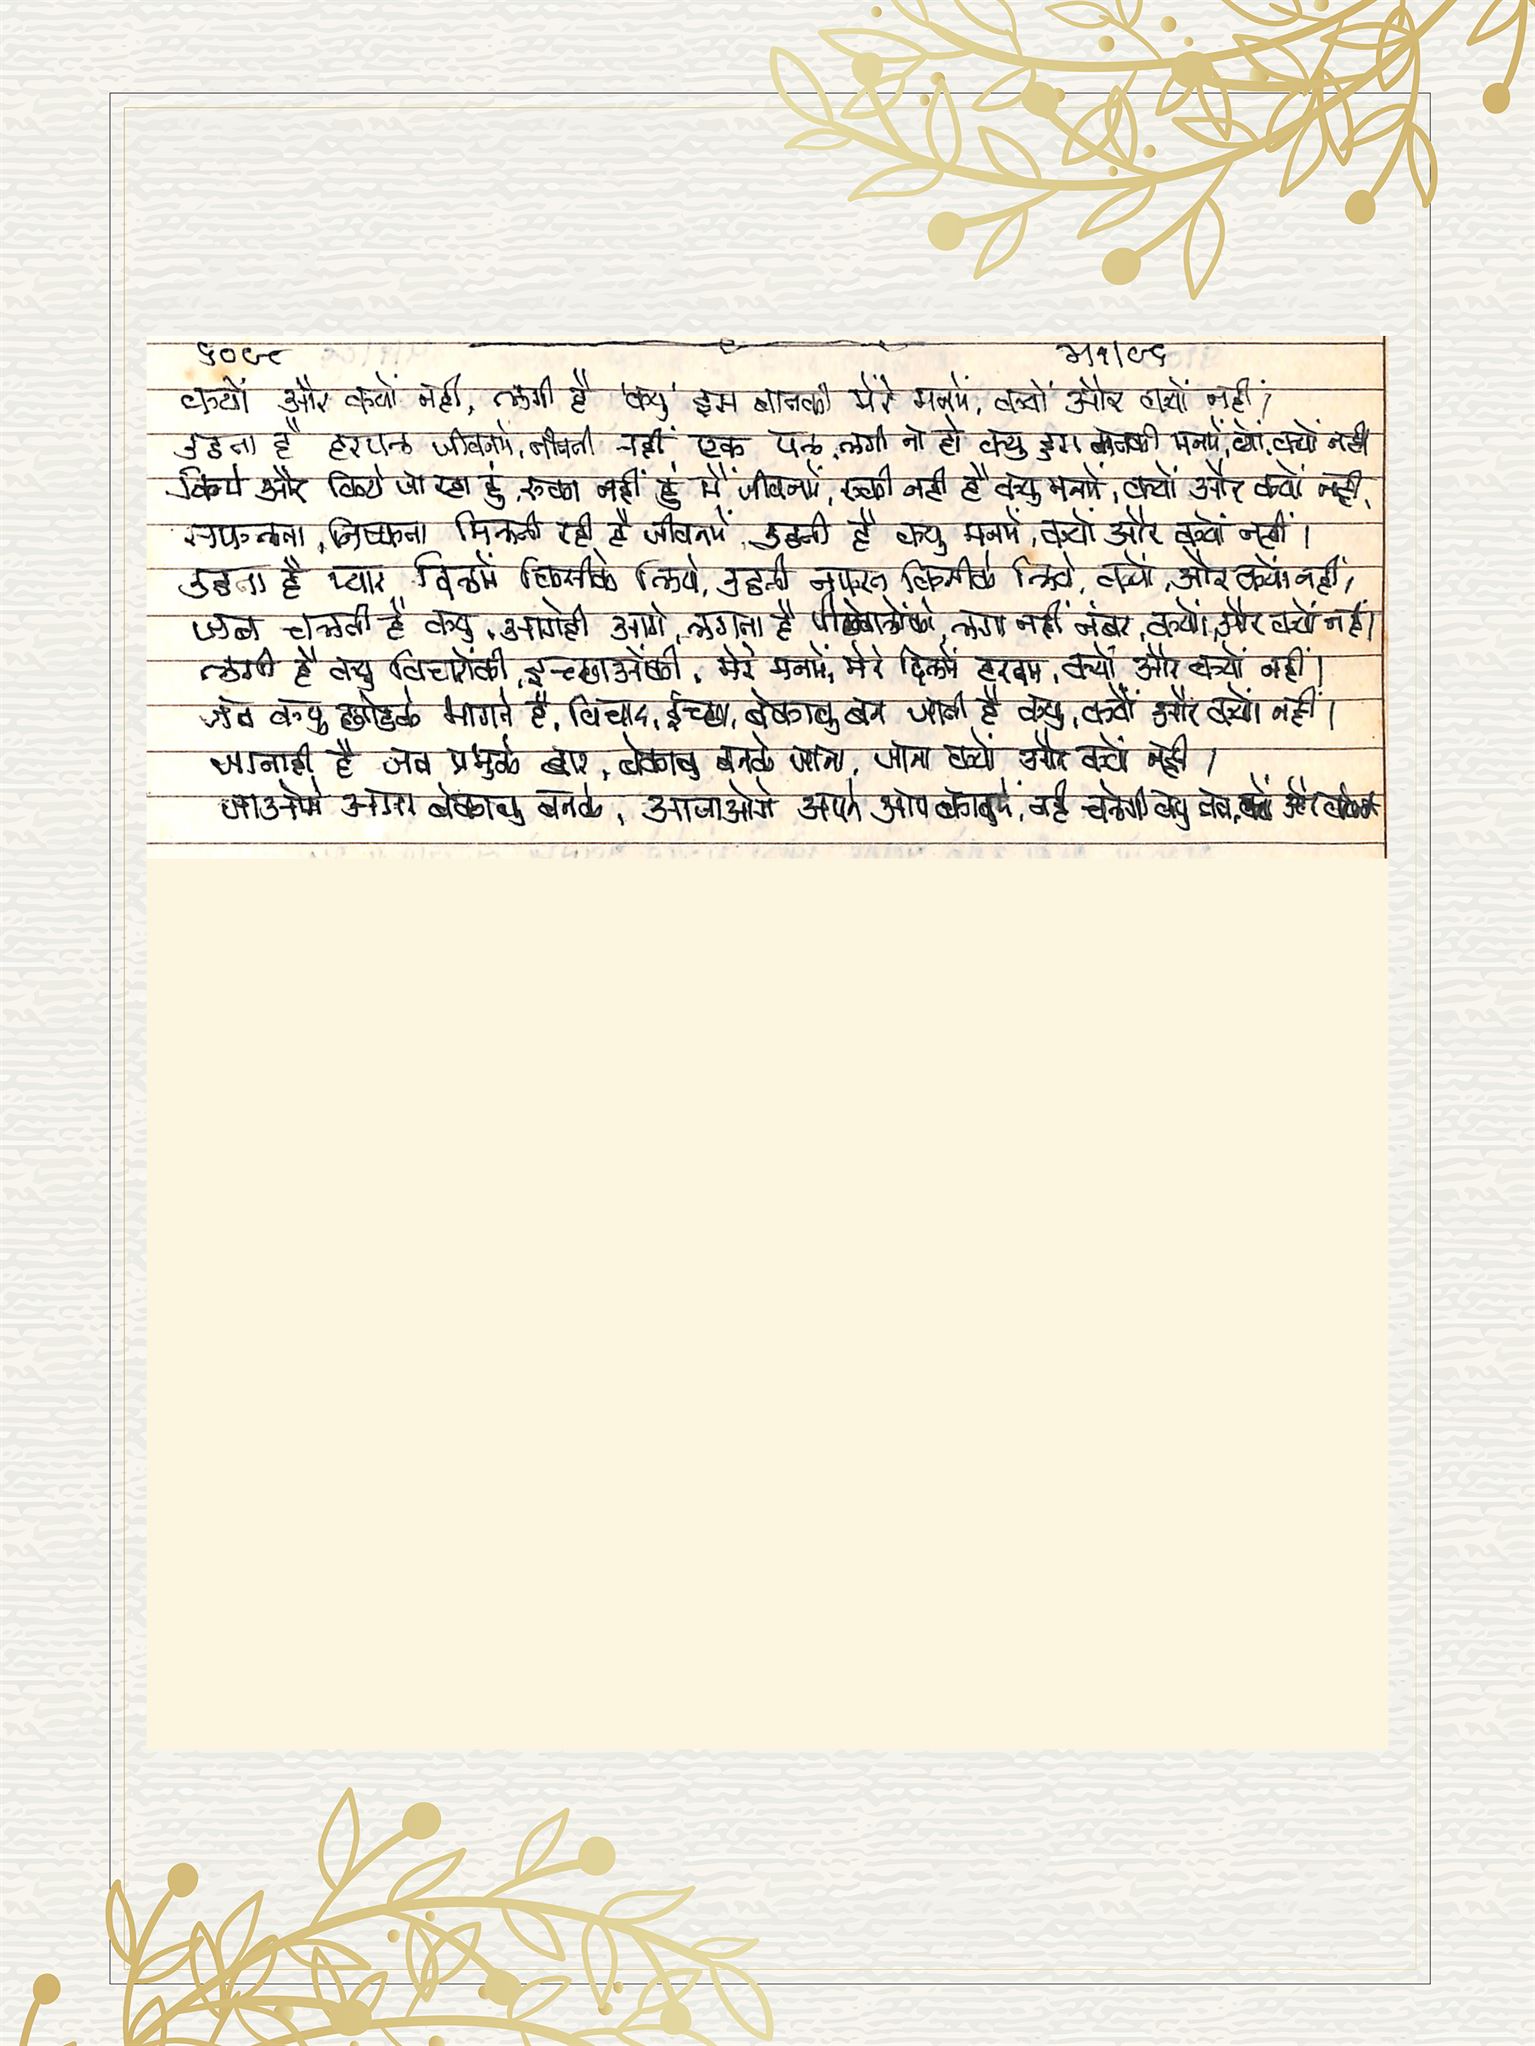 क्यों और क्यों नहीं, लगी है 'क्यु' इस बातकी मेरे मनमें, क्यों और क्यों नहीं,
उठता है हरपल जीवनमें, नहीं एक पल, लगी ना हो क्यु इस बातकी मनमें, क्यों, क्यों नहीं
किये और किये जा रहा हुं, रुका नहीं हुं मैं जीवनमें, रुकी नही है क्यु मनमें, क्यों और क्यों नहीं,
सफलता, निष्फलता मिलती रही है जीवनमें, उठती है क्यु मनमें, क्यों और क्यों नहीं।
उठता है प्यार दिलमें किसीके लिये, उठती नफरत किसीके लिये, क्यों, और क्यों नहीं,
जब चलती है क्यु, आगेही आगे, लगता है पीछेवालोंको, लगा नहीं नंबर, क्यों, और क्यों नहीं।
लगी है क्यु विचारोंकी, इच्छाओंकी, मेरे मनमें, मेरे दिलमें हरदम, क्यों, और क्यों नहीं।
जब क्यु तोडके भागते है, विचार, ईच्छा, बेकाबु बन जाती है क्यु, क्यों और क्यों नहीं।
जानाही है जब प्रभुके द्वार, बेकाबु बनके जाना, जाना क्यों और क्यों नहीं।
जाओगे अगर बेकाबु बनके, आजाओगे अपने आप काबुमें, नहीं चलेगी क्यु तब, क्यों और